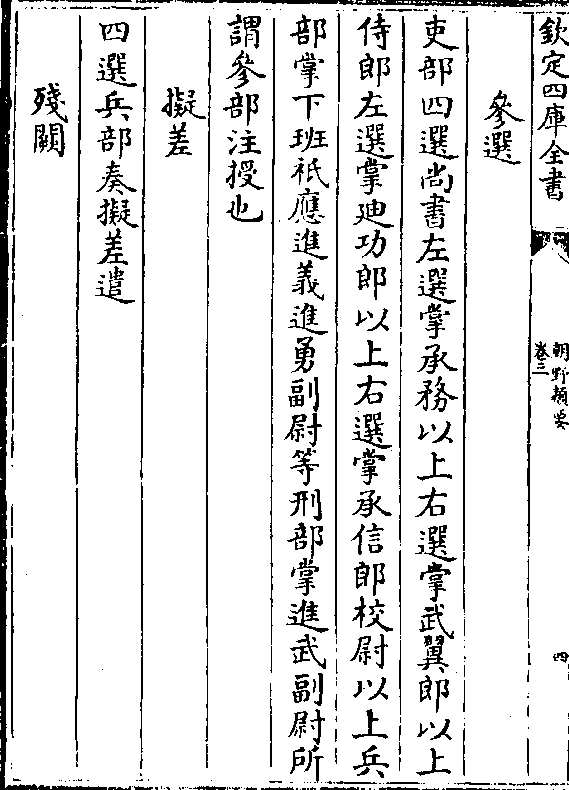 欽定四庫全書
朝野類要
卷三
四
參選
吏部四選尚書左選掌承務以上右選掌武翼郎以上
侍郎左選掌廸功郎以上右選掌承信郎校尉以上兵
部掌下班祗應進義進勇副尉等刑部掌進武副尉所
謂參部注授也
擬差
四選兵部奏擬差遣
殘闕